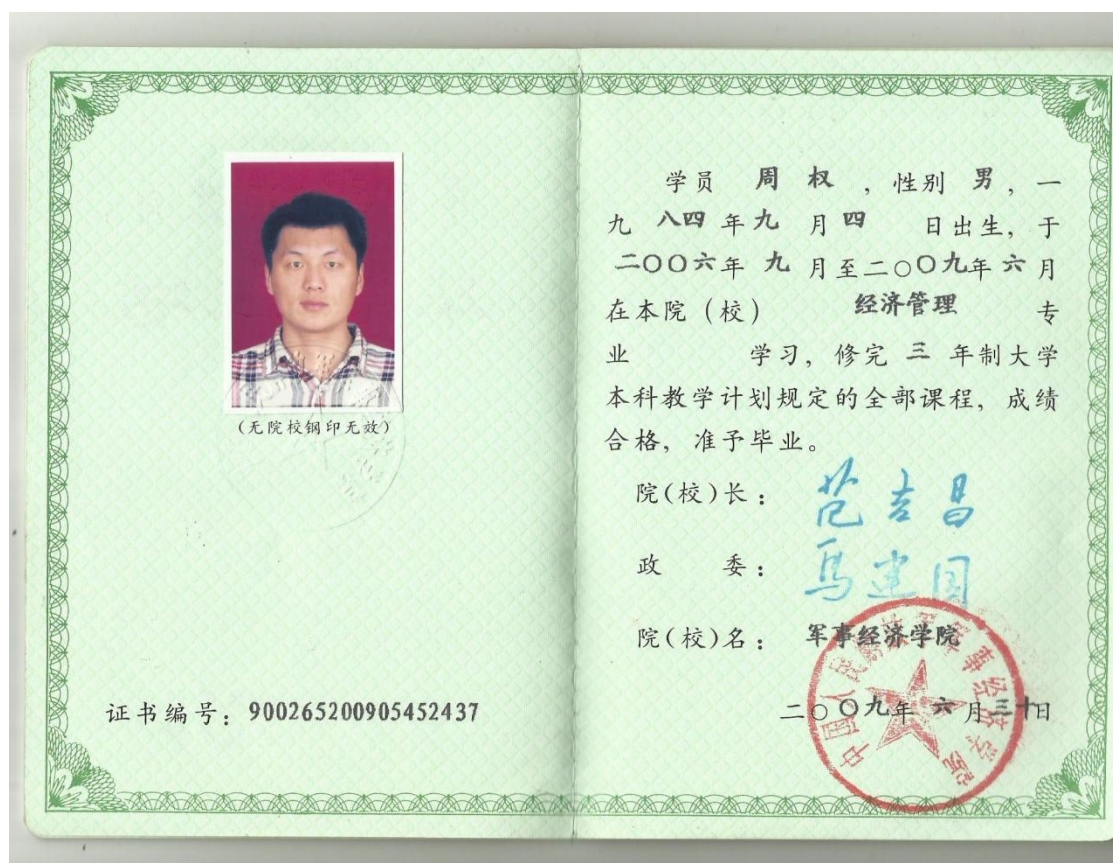 (无院校钢印无效)
证书编号：900265200905452437
学员 周权 ，性别 男 ，一
九 八四 年 九 月 四 日出生，于
二〇〇六年 九 月至二〇〇九年 六 月
在本院（校） 经济管理 专
业 学习，修完 三 年制大学
本科教学计划规定的全部课程，成绩
合格，准予毕业。
院(校)长： 范吉昌
政 委： 马建国
院(校)名： 军事经济学院
二〇〇九年 六 月 三十日
中国人民解放军军事经济学院